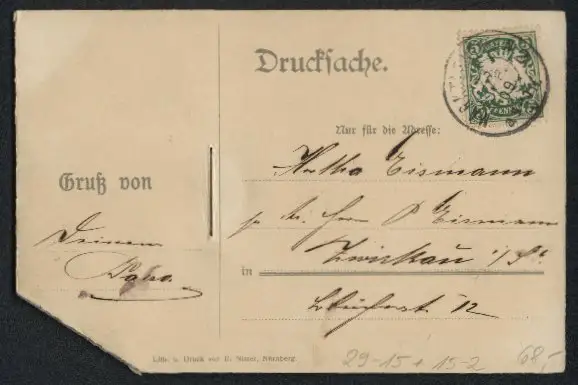 Drucksache.
Nur für die Adresse:
Gruß von
Deinem
Papa.
Hertha Eismann
Herrn P Eismann
Zwickau i/S.
in
12
Lith. u. Druck von E. Nister, Nürnberg.
29-15 + 15-2
68,-